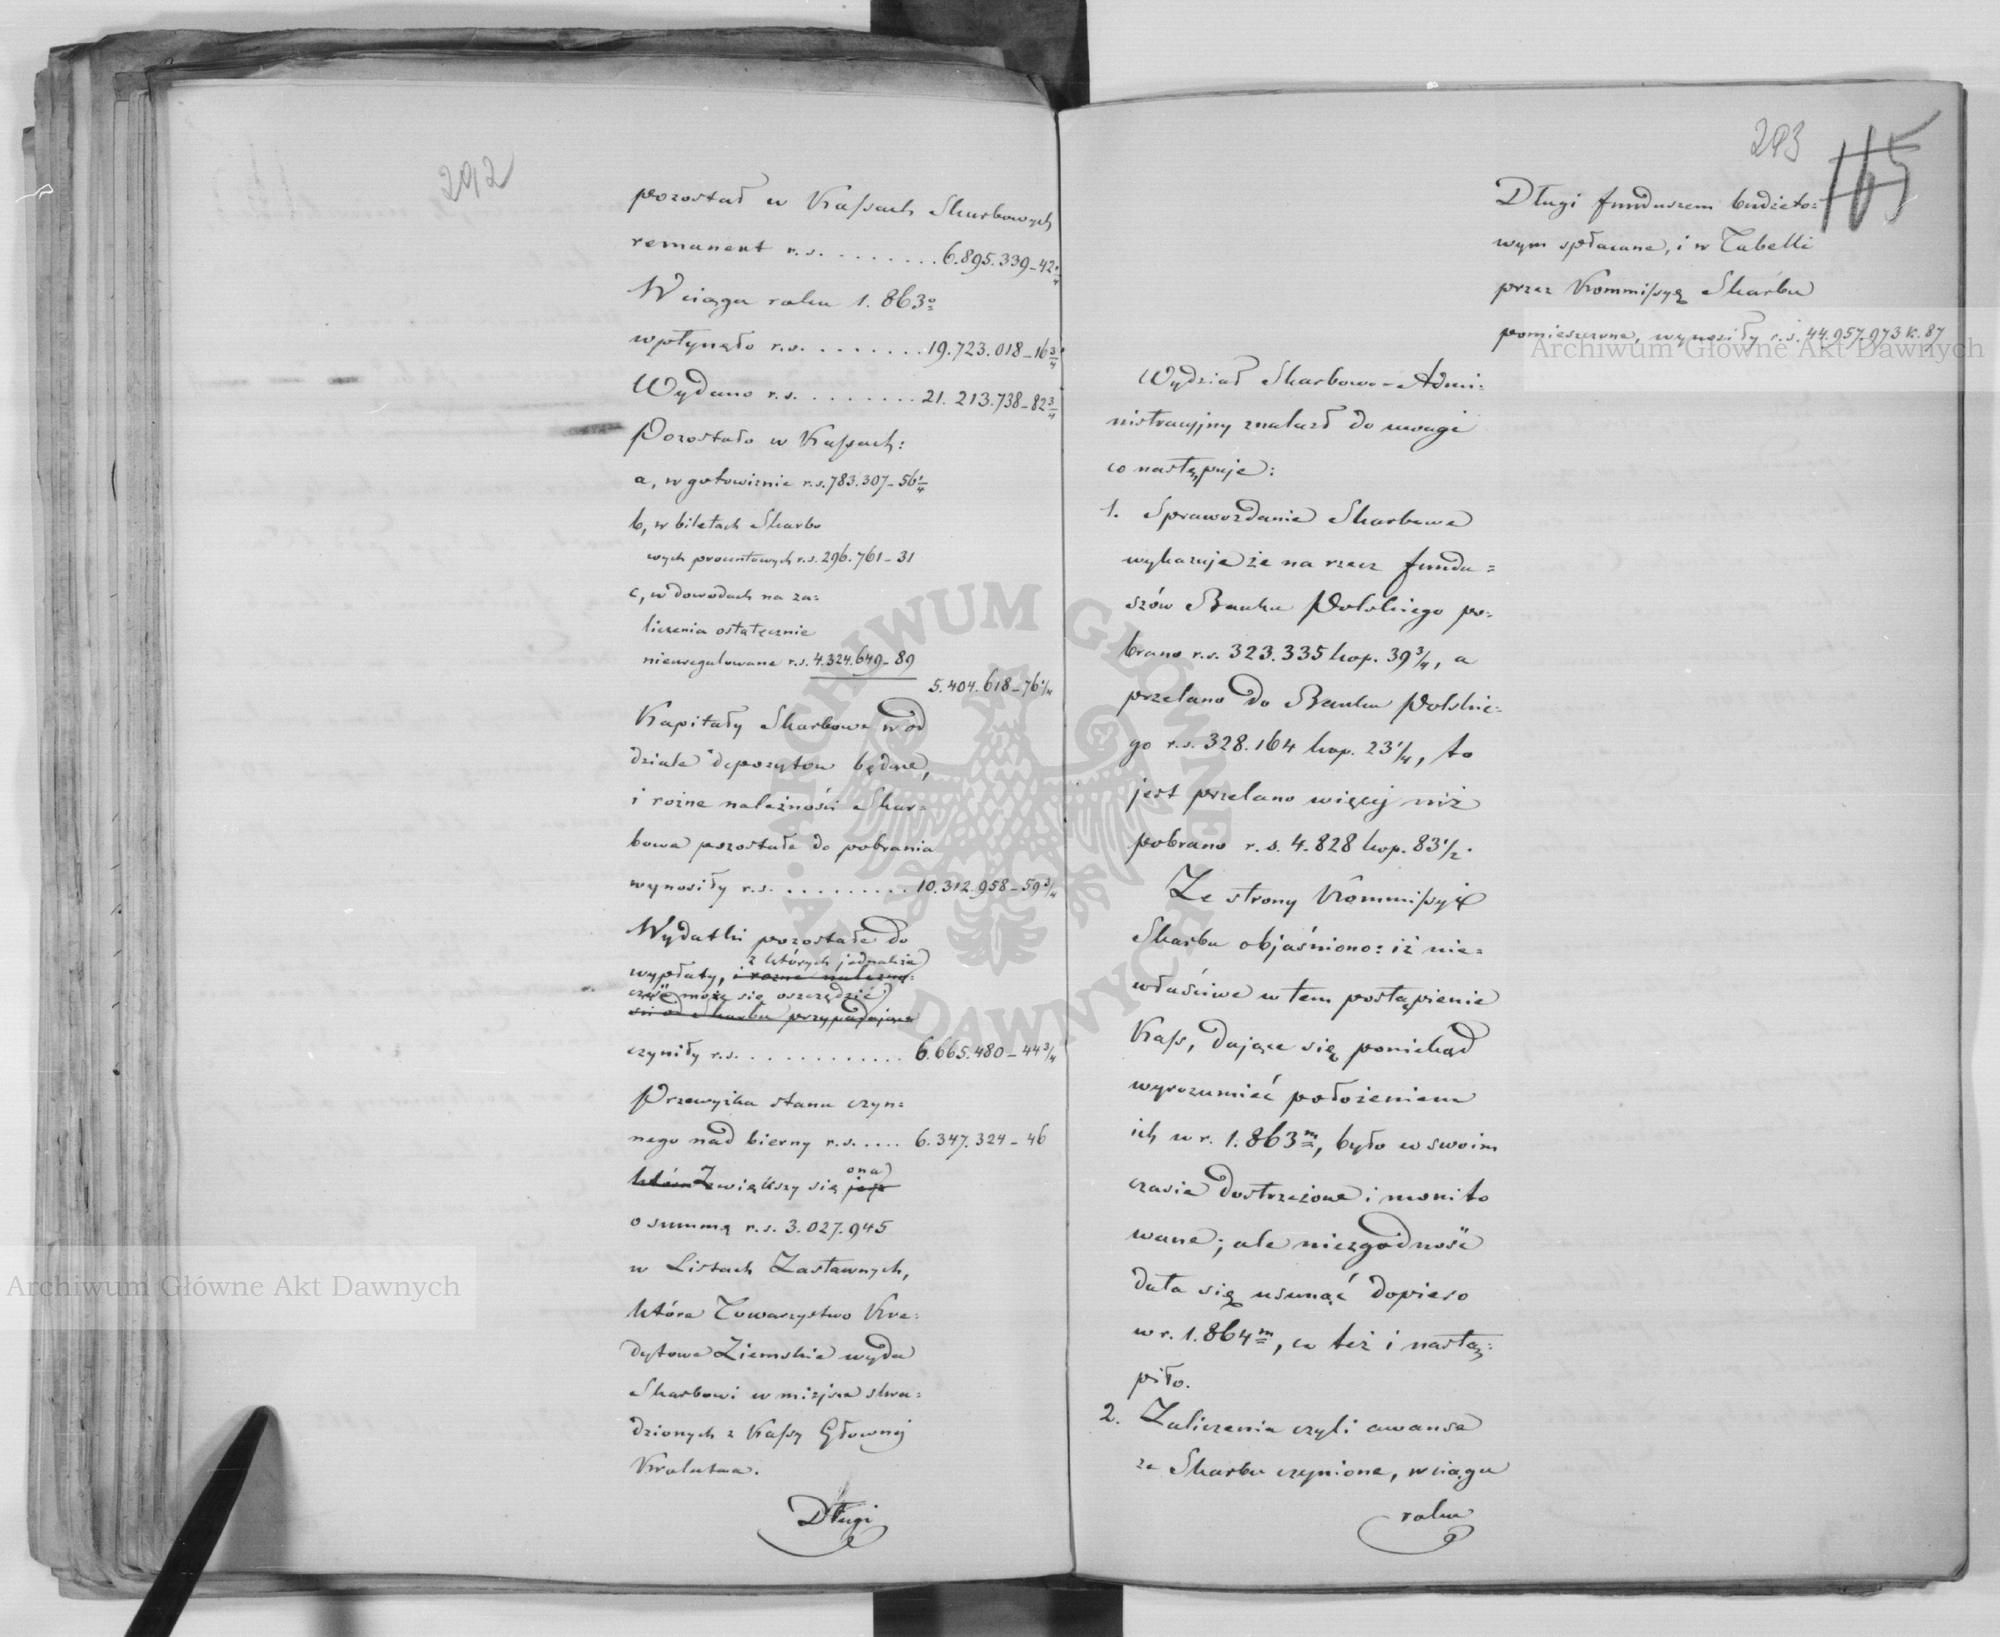 292
pozostał w Kassach Skarbowych
remanent r.s. . . . . . . . 6.895.339_42 1/4
W ciągu roku 1.863o
wpłynęło r.s. . . . . . . . 19.723.018_16 3/4
Wydano r.s. . . . . . . . . 21.213.738_82 3/4
Pozostało w Kassach:
a, w gotowiznie r.s. 783.307_56 1/4
b, w biletach Skarbo
wych procentowych r.s. 296.761_31
c, w dowodach na za=
liczenia ostatecznie
nieuregulowane r.s. 4.324.649_89
5.404.618_76 1/4
Kapitały Skarbowe w od
dziale depozytou będące,
i rożne należności Skar=
bowe pozostałe do pobrania
wynosiły r.s. . . . . . . . . . 10.312.958_59 3/4
Wydatki pozostałe do
z których jednakże
wypłaty, i rożne należno=
część może się oszczędzić
ści od Skarbu przypadające
czyniły r.s. . . . . . . . . . . . . 6.665.480_44 3/4
Przewyżka stanu czyn=
nego nad bierny r.s. . . . . 6.347.324_46
ona
która Zwiększy się jeje
o summę r.s. 3.027.945
w Listach Zastawnych,
które Towarzystwo Kre=
dytowe Ziemskie wyda
Skarbowi w miejsce skra=
dzionych z Kassy Głownej
Krolestwa.
Długi
293
165
Długi funduszem budżeto=
wym spłacane, i w Tabelli
przez Kommissyę Skarbu
pomieszczone, wynosiły r.s. 44.957.973 k. 87
Wydział Skarbowo-Admi=
nistracyjny znalazł do uwagi
co następuje:
1. Sprawozdanie Skarbowe
wykazuje że na rzecz fundu=
szów Banku Polskiego po=
brano r.s. 323.335 kop. 39 3/4, a
przelano do Banku Polskie=
go r.s. 328.164 kop. 23 1/4, to
jest przelano więcej niż
pobrano r.s. 4.828 kop. 83 1/2.
Ze strony Kommissyi
Skarbu objaśniono: iż nie=
właściwe w tem postąpienie
Kass, dające się poniekąd
wyrozumieć położeniem
ich w r. 1.863m, było w swoim
czasie dostrzeżone i monito
wane; ale niezgodność
dała się usunąć dopiero
w r. 1.864m, co też i nastą=
piło.
2. Zaliczenia czyli awanse
ze Skarbu czynione, w ciągu
roku
Archiwum Główne Akt Dawnych
Archiwum Główne Akt Dawnych
ARCHIWUM GŁÓWNE AKT DAWNYCH